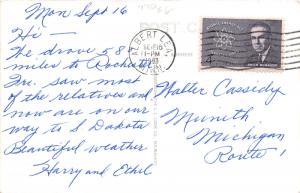 Mon Sept 16
POST CARD
Hi -
We drove 580
miles to Rochester
Fri. saw most
of the relatives and
now are on our
way to S Dakota
Beautiful weather
Harry and Ethel
ALBERT LEA,
SEP 16
1 - PM
1963
MINN.
4¢
Walter Cassidy
Munith
Michigan
Route 1